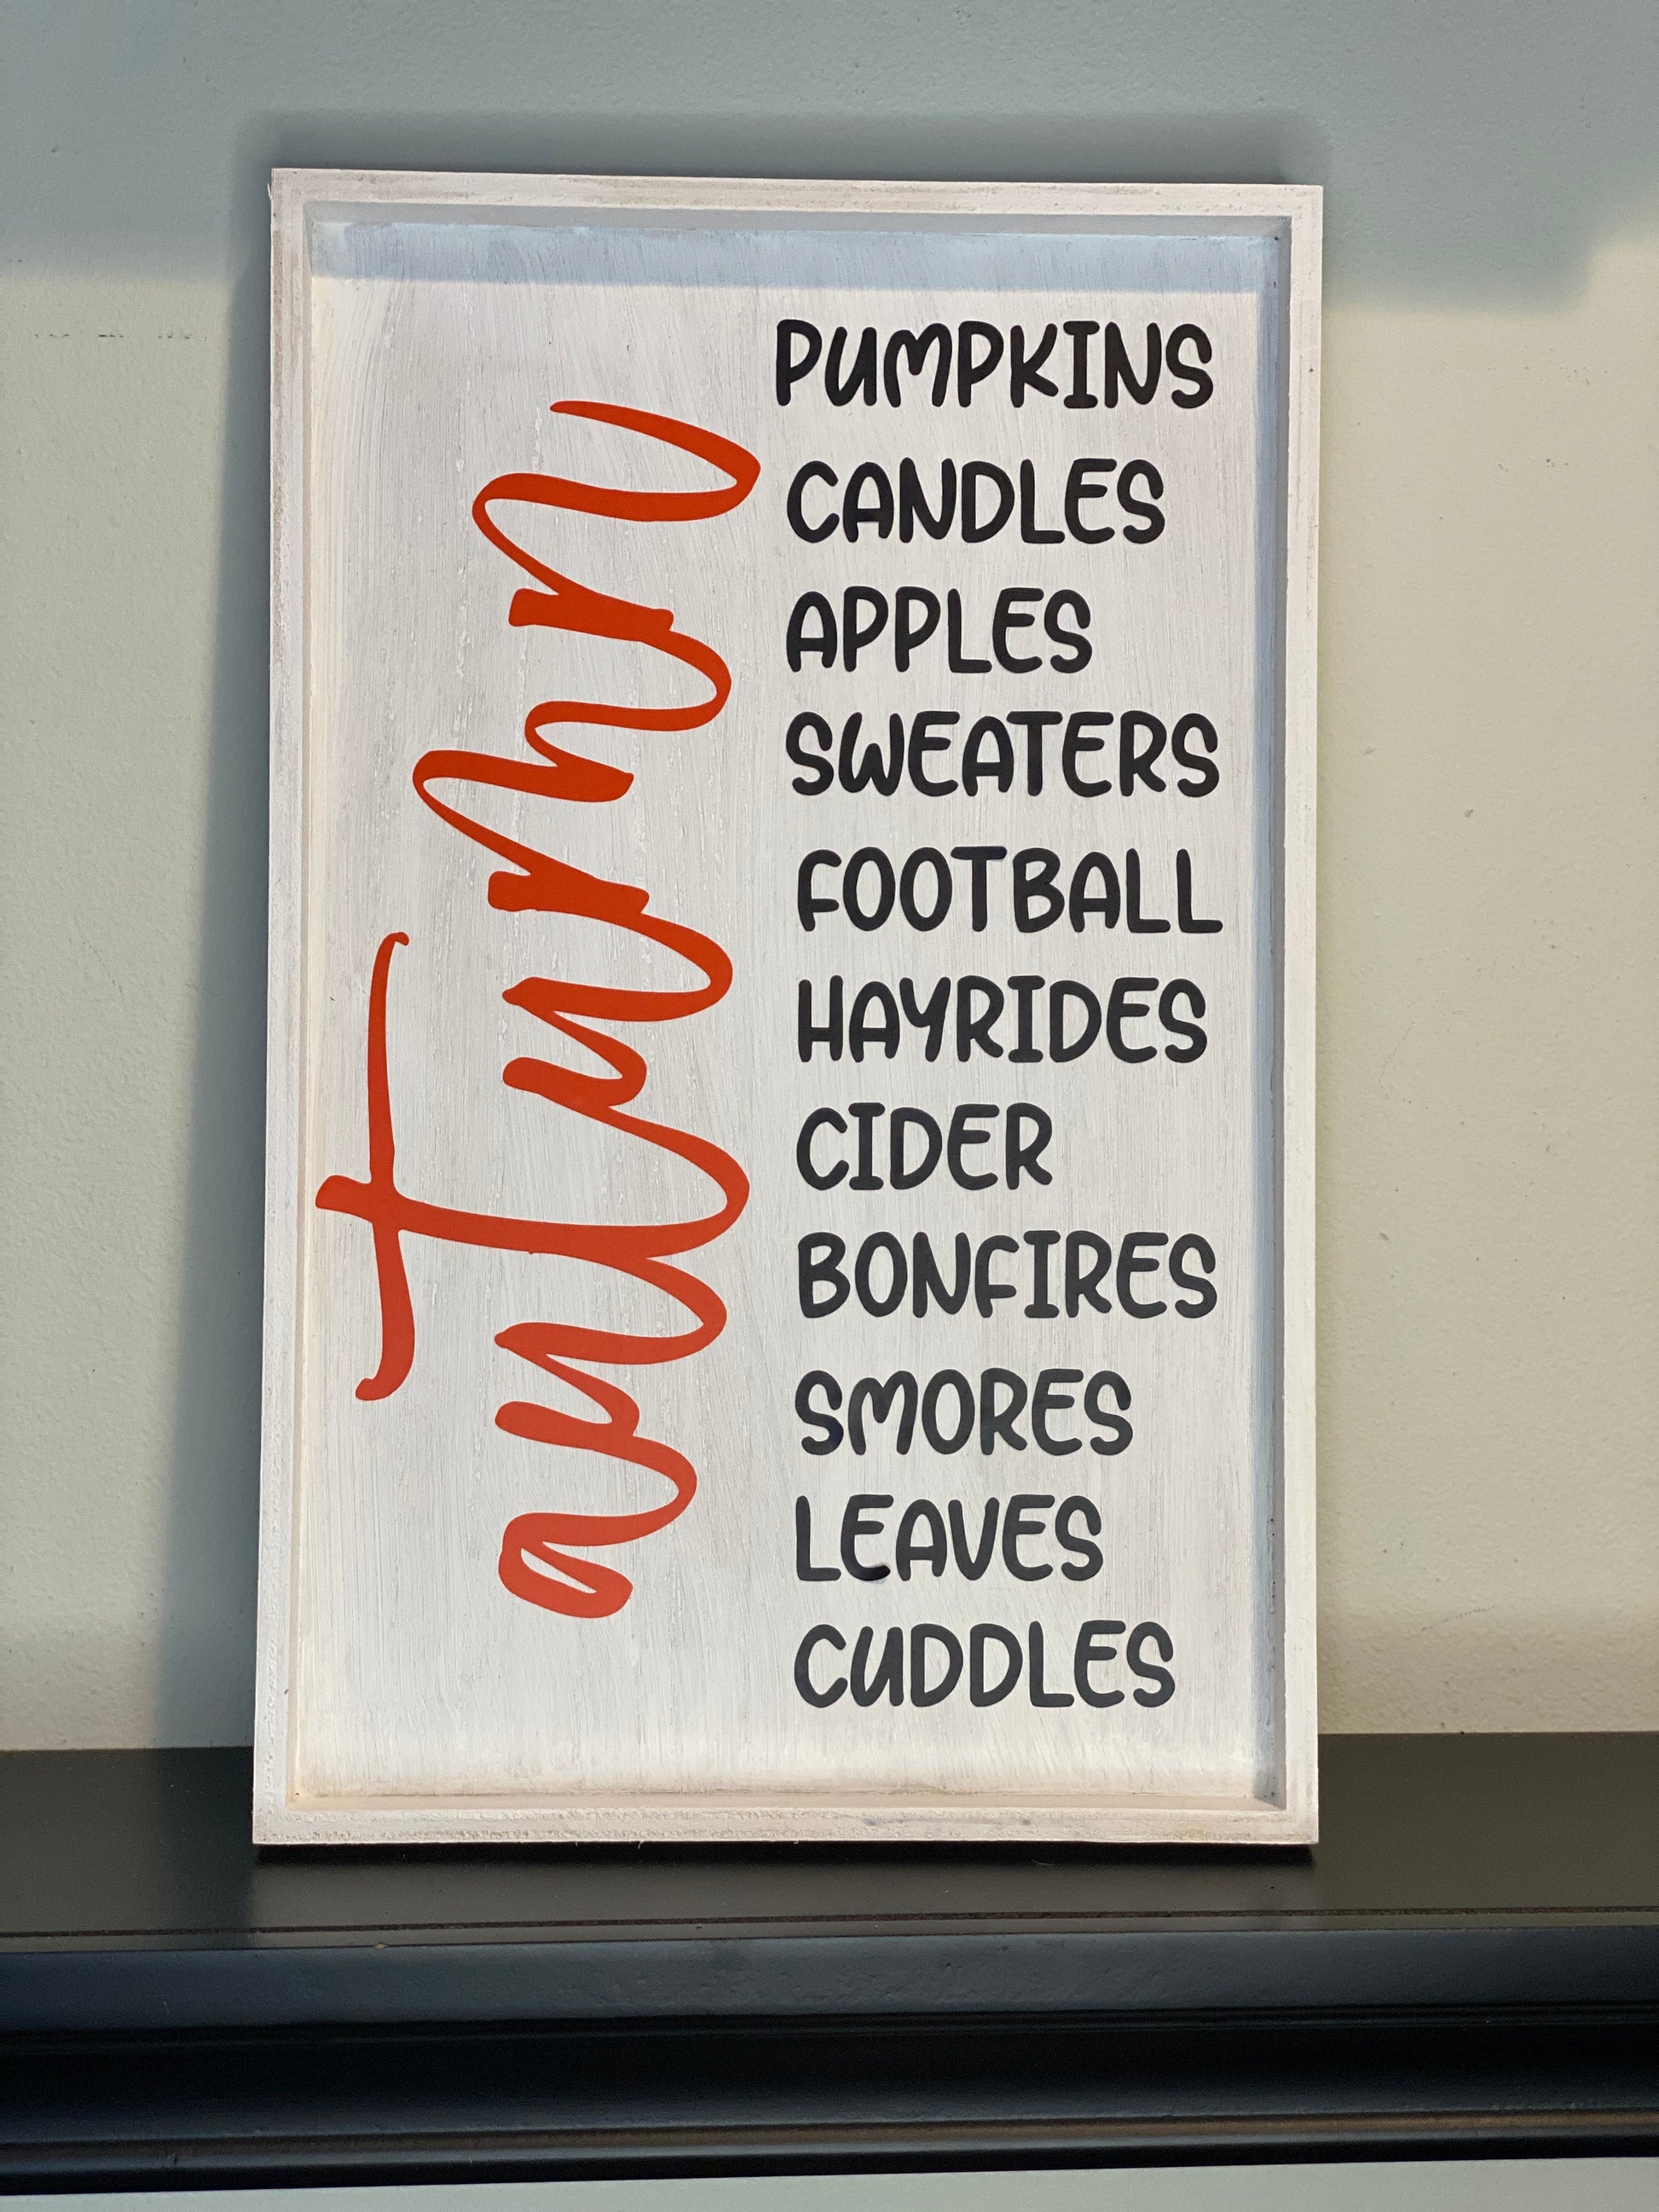 autumn
PUMPKINS
CANDLES
APPLES
SWEATERS
FOOTBALL
HAYRIDES
CIDER
BONFIRES
SMORES
LEAVES
CUDDLES